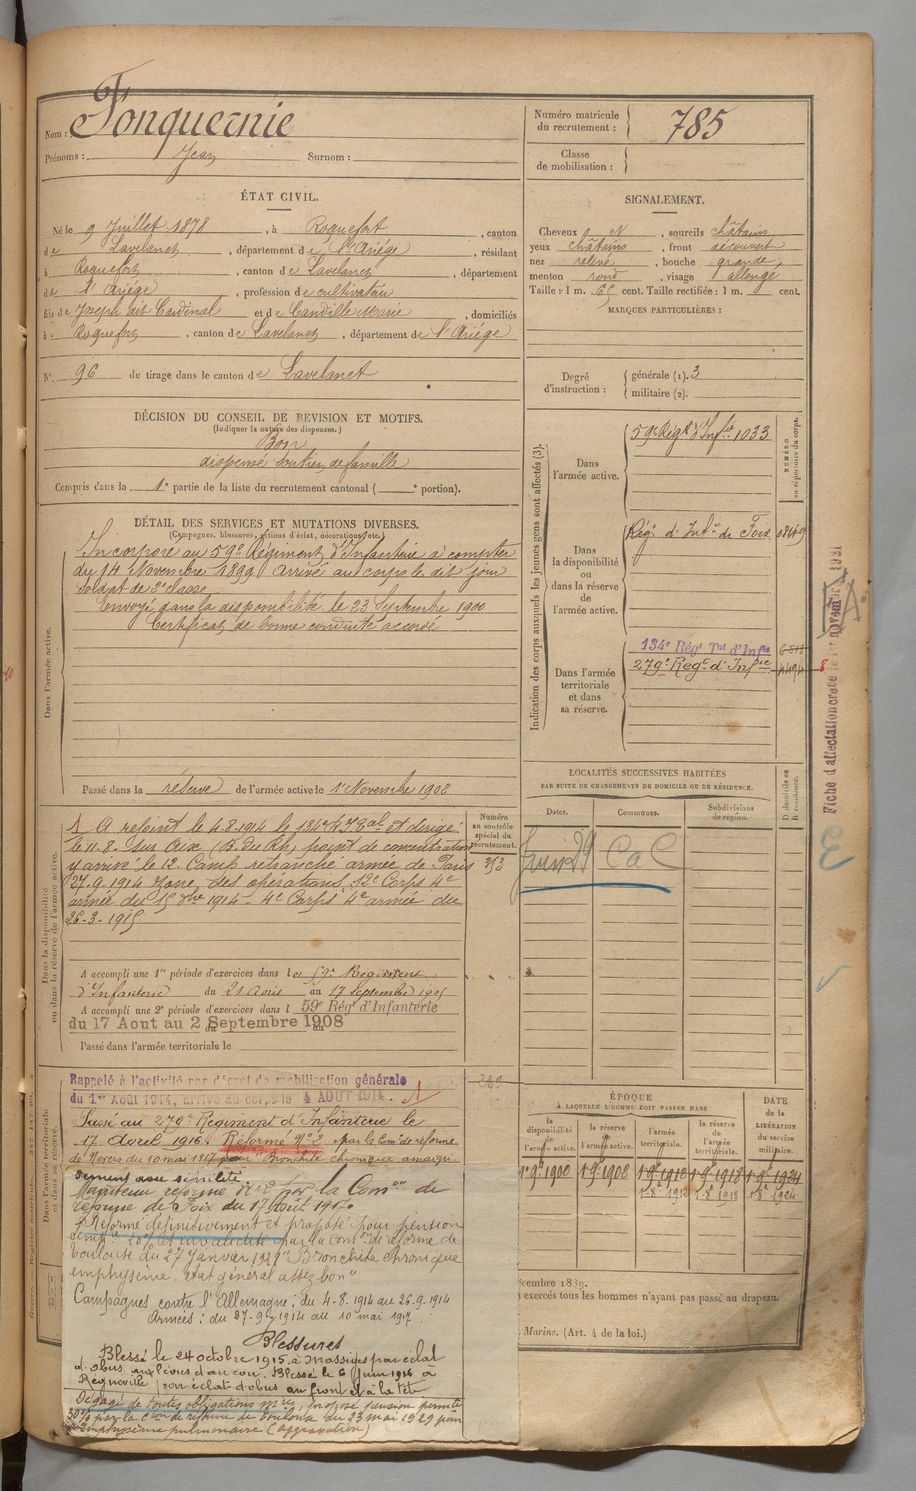 Nom : Fonquernie
Prénoms : Jean Surnom :
Numéro matricule du recrutement : 785
Classe de mobilisation :
ÉTAT CIVIL.
Né le 9 Juillet 1878, à Roquefort, canton
de Lavelanet, département de l'Ariége, résidant
à Roquefort, canton de Lavelanet, département
de l'Ariége, profession de cultivateur
fils de Joseph dit Cardinal et de Candille Marie, domiciliés
à Roquefort, canton de Lavelanet, département de l'Ariége
N° 96 de tirage dans le canton de Lavelanet
SIGNALEMENT.
Cheveux N, sourcils châtains
yeux châtains, front découvert
nez relevé, bouche grande
menton rond, visage allongé
Taille : 1 m. 65 cent. Taille rectifiée : 1 m. cent.
MARQUES PARTICULIÈRES :
Degré d'instruction : générale (1). 3
militaire (2).
DÉCISION DU CONSEIL DE REVISION ET MOTIFS.
(Indiquer la nature des dispenses.)
Bon
dispensé soutien de famille
Compris dans la 1e partie de la liste du recrutement cantonal ( e portion).
DÉTAIL DES SERVICES ET MUTATIONS DIVERSES.
(Campagnes, blessures, actions d'éclat, décorations, etc.)
Dans l'armée active.
Incorporé au 59e Régiment d'Infanterie à compter
du 14 Novembre 1899 Arrivé au corps le dit jour
soldat de 2e classe
Envoyé dans la disponibilité le 23 Septembre 1900
Certificat de bonne conduite accordé
Passé dans la réserve de l'armée active le 1er Novembre 1902
Indication des corps auxquels les jeunes gens sont affectés (3).
NUMÉRO au répertoire du corps.
Dans l'armée active.
59e Régt d'Infie 1033
Dans la disponibilité ou dans la réserve de l'armée active.
Régt d'Infie de Foix 08449
Dans l'armée territoriale et dans sa réserve.
134e Régt Tal d'Infie
279e Régt d'Infie
Fiche d'affectation créée le 1er novembre 1921
LOCALITÉS SUCCESSIVES HABITÉES
PAR SUITE DE CHANGEMENTS DE DOMICILE OU DE RÉSIDENCE.
Dates. Communes. Subdivisions de région. D domicile ou R résidence.
Juin 29 CaC
Dans la disponibilité ou dans la réserve de l'armée active.
Numéro au contrôle spécial du recrutement.
313
1 A rejoint le 4-8-1914 le 134e R.I.Tal et dirigé
le 11-8- sur Aix (B. du Rh) point de concentration
y arrivé le 12. Camp retranché armée de Paris
27-9-1914 zone des opérations
armée du 15 Xbre 1914 - 4e Corps 4e armée du
26-3-1915
A accompli une 1re période d'exercices dans le 59e Régiment
d'Infanterie du 21 Août au 17 Septembre 1905
A accompli une 2e période d'exercices dans l 59e Régt d'Infanterie
du 17 Aout au 2 Septembre 1908
Passé dans l'armée territoriale le
Dans l'armée territoriale et dans sa réserve
Rappelé à l'activité par décret de mobilisation générale
du 1er Août 1914, arrivé au corps le 4 AOUT 1914. 1
Passé au 279e Régiment d'Infanterie le
17 Avril 1916. Réformé N° 2 par la Comon de réforme
de Nevers du 10 mai 1917 pour Bronchite chronique amaigris-
sement avec sénilité
Maintenu réformé N° 2 par la Comon de
réforme de Foix du 17 Août 1917.
Réformé définitivement et proposé pour pension
temp. 10% et invalidité par la Comon de réforme de
Toulouse du 27 Janvier "Bronchite chronique
emphysème, état général assez bon"
Campagnes contre l'Allemagne : du 4-8-1914 au 26-9-1914
Armées : du 27-9-1914 au 10 mai 1917.
Blessures
Blessé le 24 octobre 1915 à Massiges par éclat
d'obus aux lèvres et au cou. Blessé le 6 Juin 1916 à
Regnoville par éclat d'obus au front et à la tête
Dégagé de toutes obligations mres, proposé pension permte
30% par la Cion de réforme de Toulouse du 23 mai 1929 pour
emphysème pulmonaire (aggravation)
ÉPOQUE
À LAQUELLE L'HOMME DOIT PASSER DANS
la disponibilité de l'armée active.
la réserve de l'armée active.
l'armée territoriale.
la réserve de l'armée territoriale.
DATE de la LIBÉRATION du service militaire.
1-9-1900 1-9-1902 1-9-1912 1-9-1918 1-9-1924
1-8-1912 1-8-1918 1-8-1924
écembre 1889.
exercés tous les hommes n'ayant pas passé au drapeau.
Marine. (Art. 4 de la loi.)